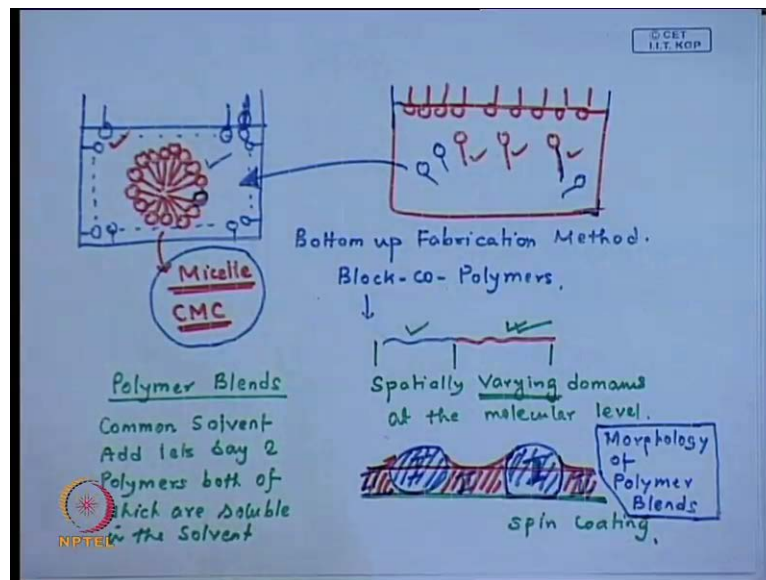 © CET
I.I.T. KGP
Bottom up Fabrication Method.
Block-co-Polymers.
Micelle
CMC
Spatially Varying domains
at the molecular level.
Polymer Blends
Common Solvent
Add lets say 2
Polymers both of
which are soluble
in the Solvent
Morphology
of
Polymer
Blends
Spin Coating.
NPTEL